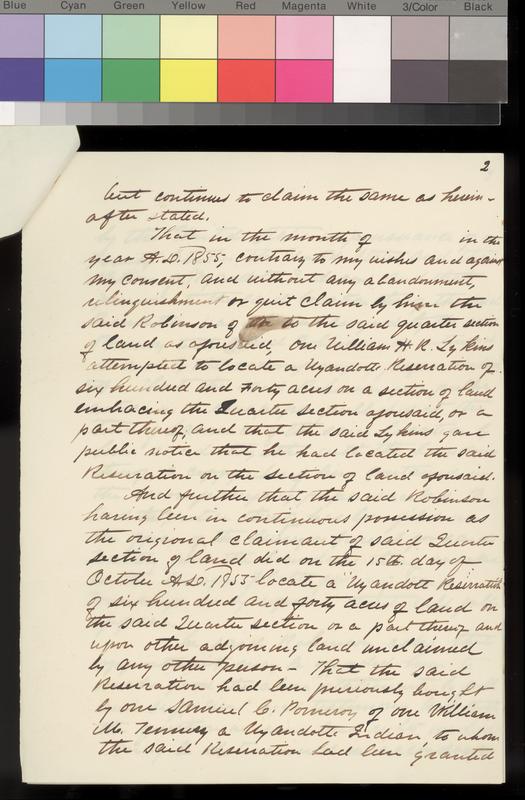 Blue Cyan Green Yellow Red Magenta White 3/Color Black
2
but continues to claim the same as herein-
after stated.
That in the month of in the
year A.D. 1855, contrary to my wishes and against
my consent, and without any abandonment,
relinquishment or quit claim by him the
said Robinson of to the said quarter section
of land as aforesaid, one William H. R. Lykins
attempted to locate a Wyandott Reservation of
six hundred and Forty acres on a section of land
embracing the Quarter section aforesaid, or a
part thereof, and that the said Lykins gave
public notice that he had located the said
Reservation on the section of land aforesaid.
And further that the said Robinson
having been in continuous possession as
the origional claimant of said Quarter
section of land did on the 15th day of
October A.D. 1855 locate a Wyandott Reservation
of six hundred and forty acres of land on
the said Quarter section or a part thereof and
upon other adjoining land unclaimed
by any other person - That the said
Reservation had been previously bought
by one Samuel C. Pomeroy of one William
M. Tennery a Wyandotte Indian, to whom
the said Reservation had been granted